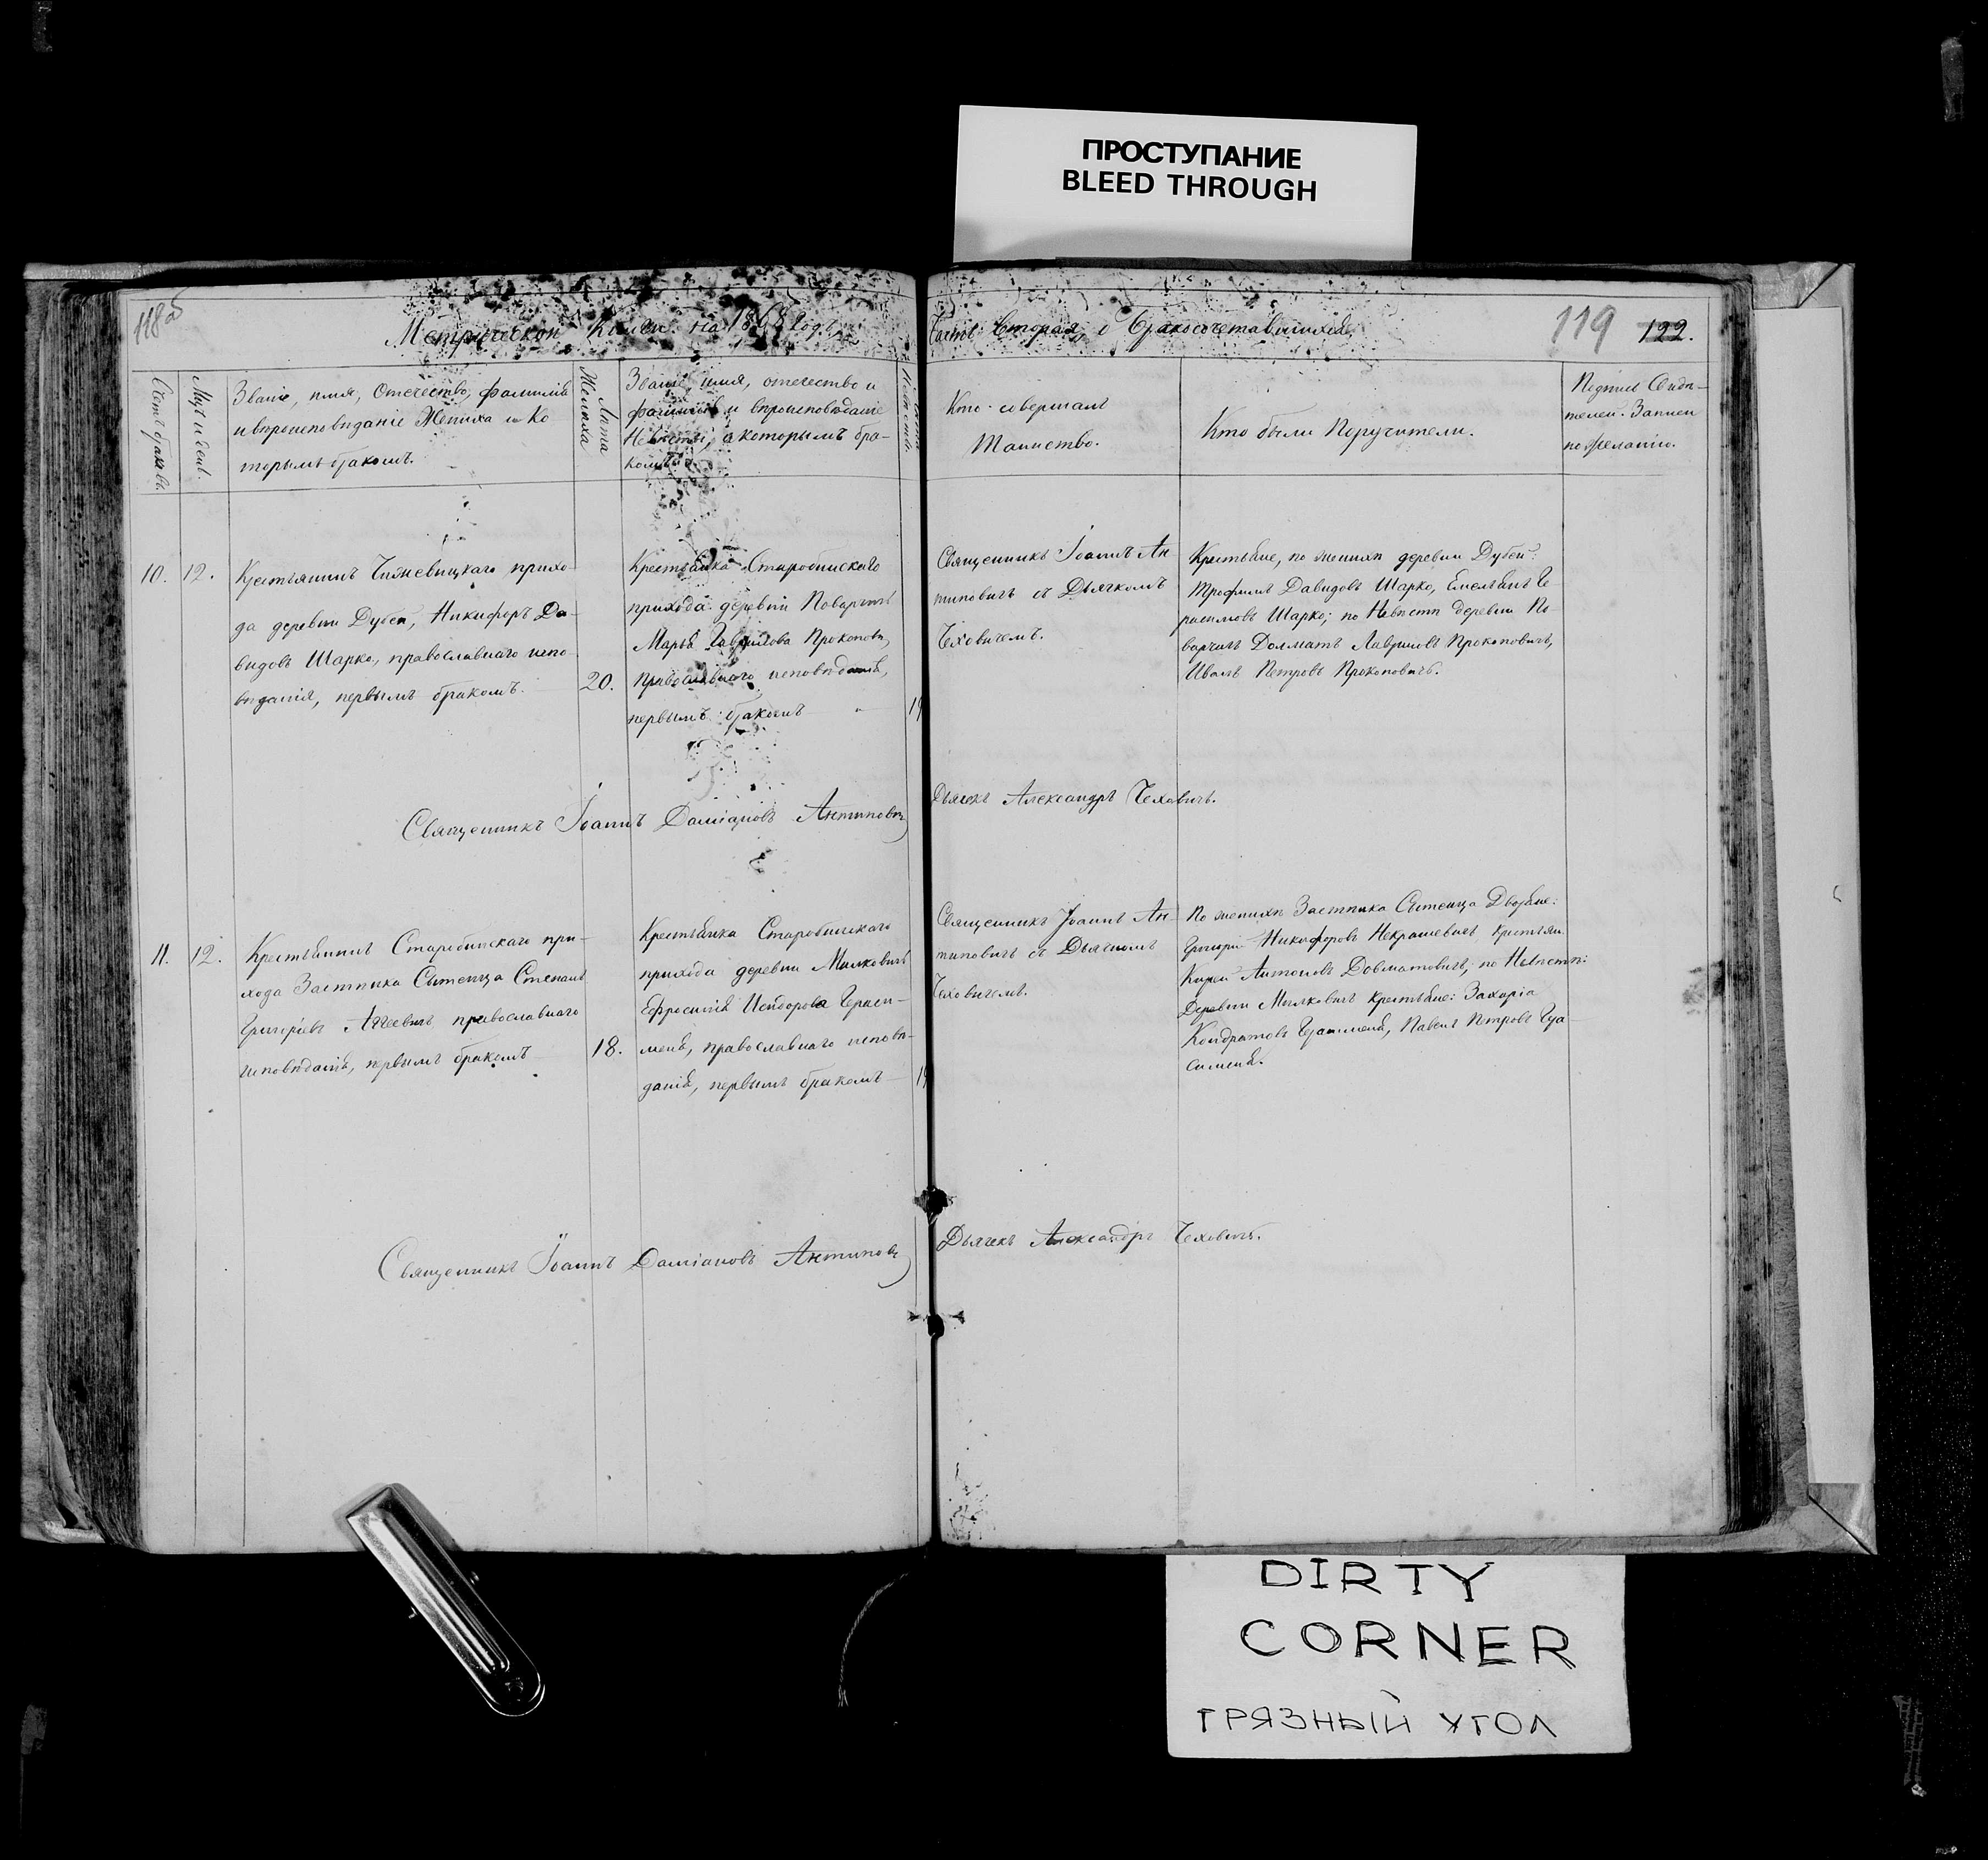 ПРОСТУПАНИЕ
BLEED THROUGH
118об
119 122.
Метрической Книги на 1868 годъ
Часть вторая, о бракосочетавшихся
Счетъ браковъ.
Мѣс. и день.
Званіе, имя, отечество, фамилія
и вѣроисповѣданіе Жениха и ко
торымъ бракомъ.
Лѣта
Жениха
Званіе, имя, отечество и
фамилія и вѣроисповѣданіе
Невѣсты, и которымъ бра-
комъ.
Кто совершалъ
Таинство.
Кто были Поручители.
Подпись Свидѣ-
телей Записи
по желанію.
10. 12.
Крестьянинъ Чижевицкаго прихо-
да деревни Дубеи, Никифоръ Да-
видовъ Шарко, православнаго испо
вѣданія, первымъ бракомъ.
20.
Крестьянка Старобинскаго
прихода деревни Поварчицъ
Марья Гаврилова Прокоповъ,
православнаго исповѣданія,
первымъ бракомъ
19
Священникъ Іоаннъ Ан
типовичъ съ Дьячкомъ
Чеховичемъ.
Крестьяне, по женихѣ деревни Дубеи:
Трофимъ Давидовъ Шарко, Емельянъ Ге-
расимовъ Шарко; по Невѣстѣ деревни По-
варчицъ Долматъ Лавриновъ Прокоповичъ,
Иванъ Петровъ Прокоповичъ.
Священникъ Іоаннъ Даміановъ Антиповичъ
Дьячекъ Александръ Чеховичъ.
11. 12.
Крестьянинъ Старобинскаго при-
хода Застѣнка Сытенца Степанъ
Григорьевъ Агеевичъ православнаго
исповѣданія, первымъ бракомъ
18.
Крестьянка Старобинскаго
прихода деревни Милковичъ
Ефросинія Исидорова Гераси-
меня, православнаго исповѣ-
данія, первымъ бракомъ
19
Священникъ Іоаннъ Ан-
типовичъ съ Дьячкомъ
Чеховичемъ.
По женихѣ Застѣнка Сытенца Дворяне:
Григорій Никифоровъ Некрашевичъ, крестьян.
Антоновъ Довматовичъ; по Невѣстѣ:
Деревни Милковичъ крестьяне: Захарія
Кондратовъ Герасименя, Павелъ Петровъ Гера-
сименя.
Священникъ Іоаннъ Даміановъ Антиповъ
Дьячекъ Александръ Чеховичъ.
DIRTY
CORNER
ГРЯЗНЫЙ УГОЛ